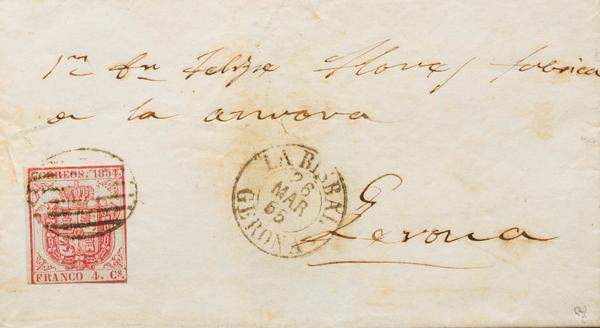 Sr Dn Felipe Flores fabrica
de la
Gerona
CORREOS. 1854
FRANCO 4. CS.
LA BISBAL
26
MAR
55
GERONA